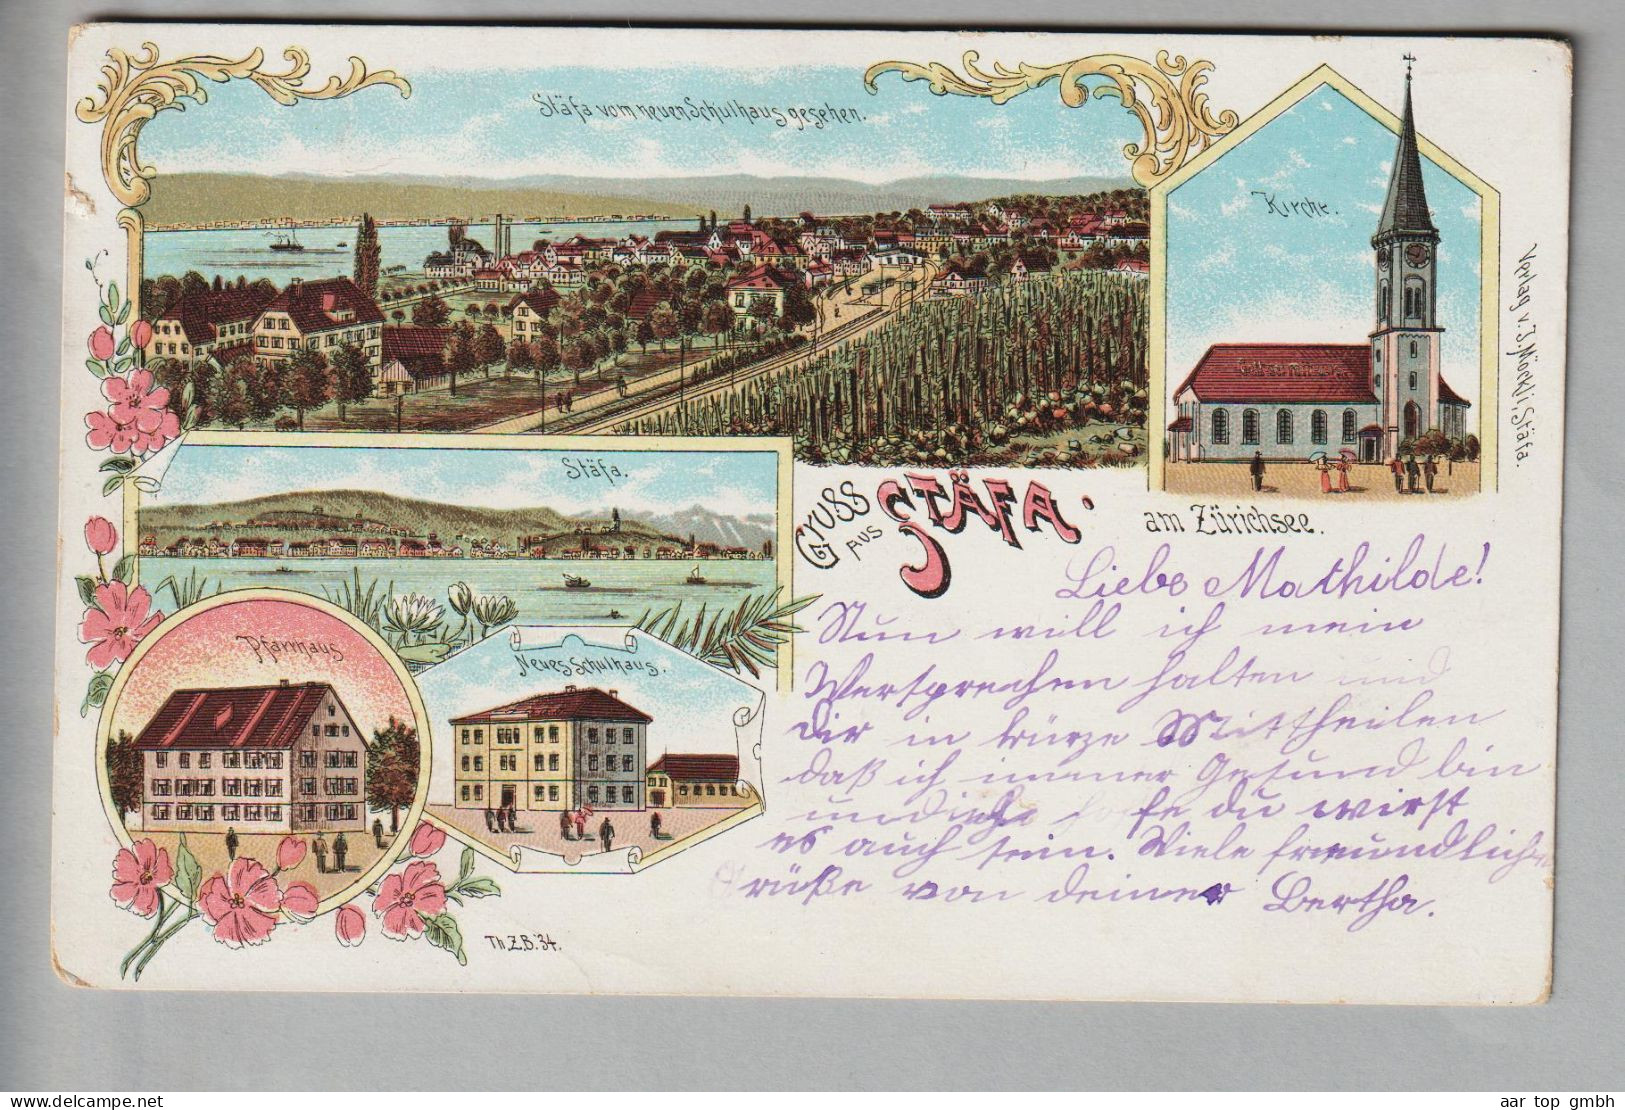 Stäfa vom neuen Schulhaus gesehen.
Kirche.
Verlag v. J. Möckli, Stäfa.
Stäfa.
Pfarrhaus
Neues Schulhaus.
GRUSS
AUS
STÄFA
am Zürichsee.
Liebe Mathilde!
Nun will ich mein
Versprechen halten und
Dir in kürze Mittheilen
daß ich immer Gesund bin
und ich hoffe du wirst
es auch sein. Viele freundliche
Grüße von deiner Bertha.
Th. Z. B. 34.
aar top gmbh